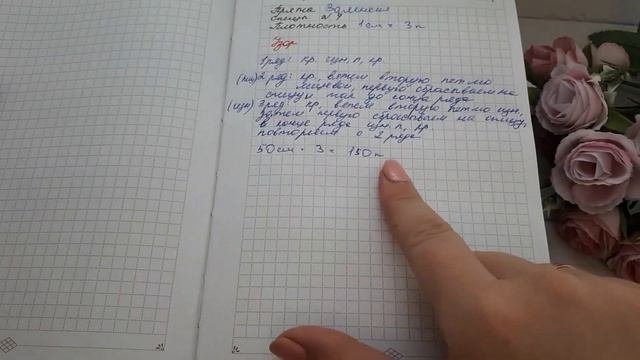 Пряжа
Спицы №
Плотность 1 см = 3 п
Узор
1 ряд: кр. изн. п, кр.
(лиц) 2 ряд: кр, вяжем вторую петлю
лицевой, первую сбрасываем на
спицу и так до конца ряда
(изн) 3 ряд: кр. вяжем вторую петлю изн,
затем первую сбрасываем на спицу,
в конце ряда изн. п, кр.
повторяем с 2 ряда
50 см · 3 = 150 п